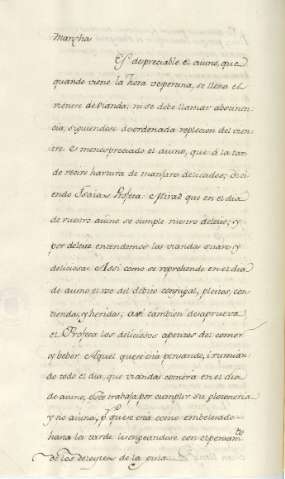 Marzha.
Es despreciable el aiuno, que
quando viene la hora vespertina, se llena el
vientre de vianda; ni se debe llamar abstinen-
cia, siguiendose desordenada replecion del vien-
tre. Es menospreciado el aiuno, que à la tar
de recive hartura de manjares delicados; dici-
endo Isaias Profeta: Mirad que en el dia
de vuestro aiuno se cumple vuestro deleite; y
por deleite entendemos las viandas suaves y
deliciosas. Assi como se reprehende en el dia
de aiuno el uso del débito conjugal, pleitos, con
tiendas, y heridas, assi tambien desaprueva
el Profeta los deliciosos apetitos del comer
y beber. Aquel que está pensando, i rumian
do todo el dia, que viandas comera en el dia
de aiuno, este trabaja por cumplir su
y no aiuna, pues que está como embelesado
hasta la tarde lisongeandose con el pensamto
de los deleites de la gula.